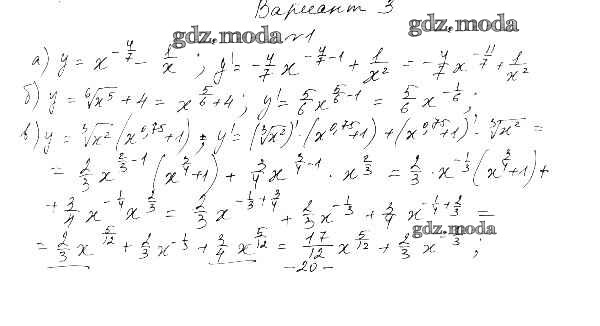 Вариант 3
gdz.moda
gdz.moda
№1
а) y = x^{-4/7} - 1/x ; y' = -4/7 x^{-4/7-1} + 1/x² = -4/7 x^{-11/7} + 1/x²
б) y = ⁶√x⁵ + 4 = x^{5/6} + 4 ; y' = 5/6 x^{5/6-1} = 5/6 x^{-1/6} ;
в) y = ³√x² (x^{0,75} + 1) ; y' = (³√x²)' · (x^{0,75} + 1) + (x^{0,75} + 1)' · ³√x² =
= 2/3 x^{2/3-1} (x^{3/4} + 1) + 3/4 x^{3/4-1} · x^{2/3} = 2/3 · x^{-1/3} (x^{3/4} + 1) +
+ 3/4 x^{-1/4} x^{2/3} = 2/3 x^{-1/3+3/4} + 2/3 x^{-1/3} + 3/4 x^{-1/4+2/3} =
gdz.moda
= 2/3 x^{5/12} + 2/3 x^{-1/3} + 3/4 x^{5/12} = 17/12 x^{5/12} + 2/3 x^{-1/3} ;
-20-